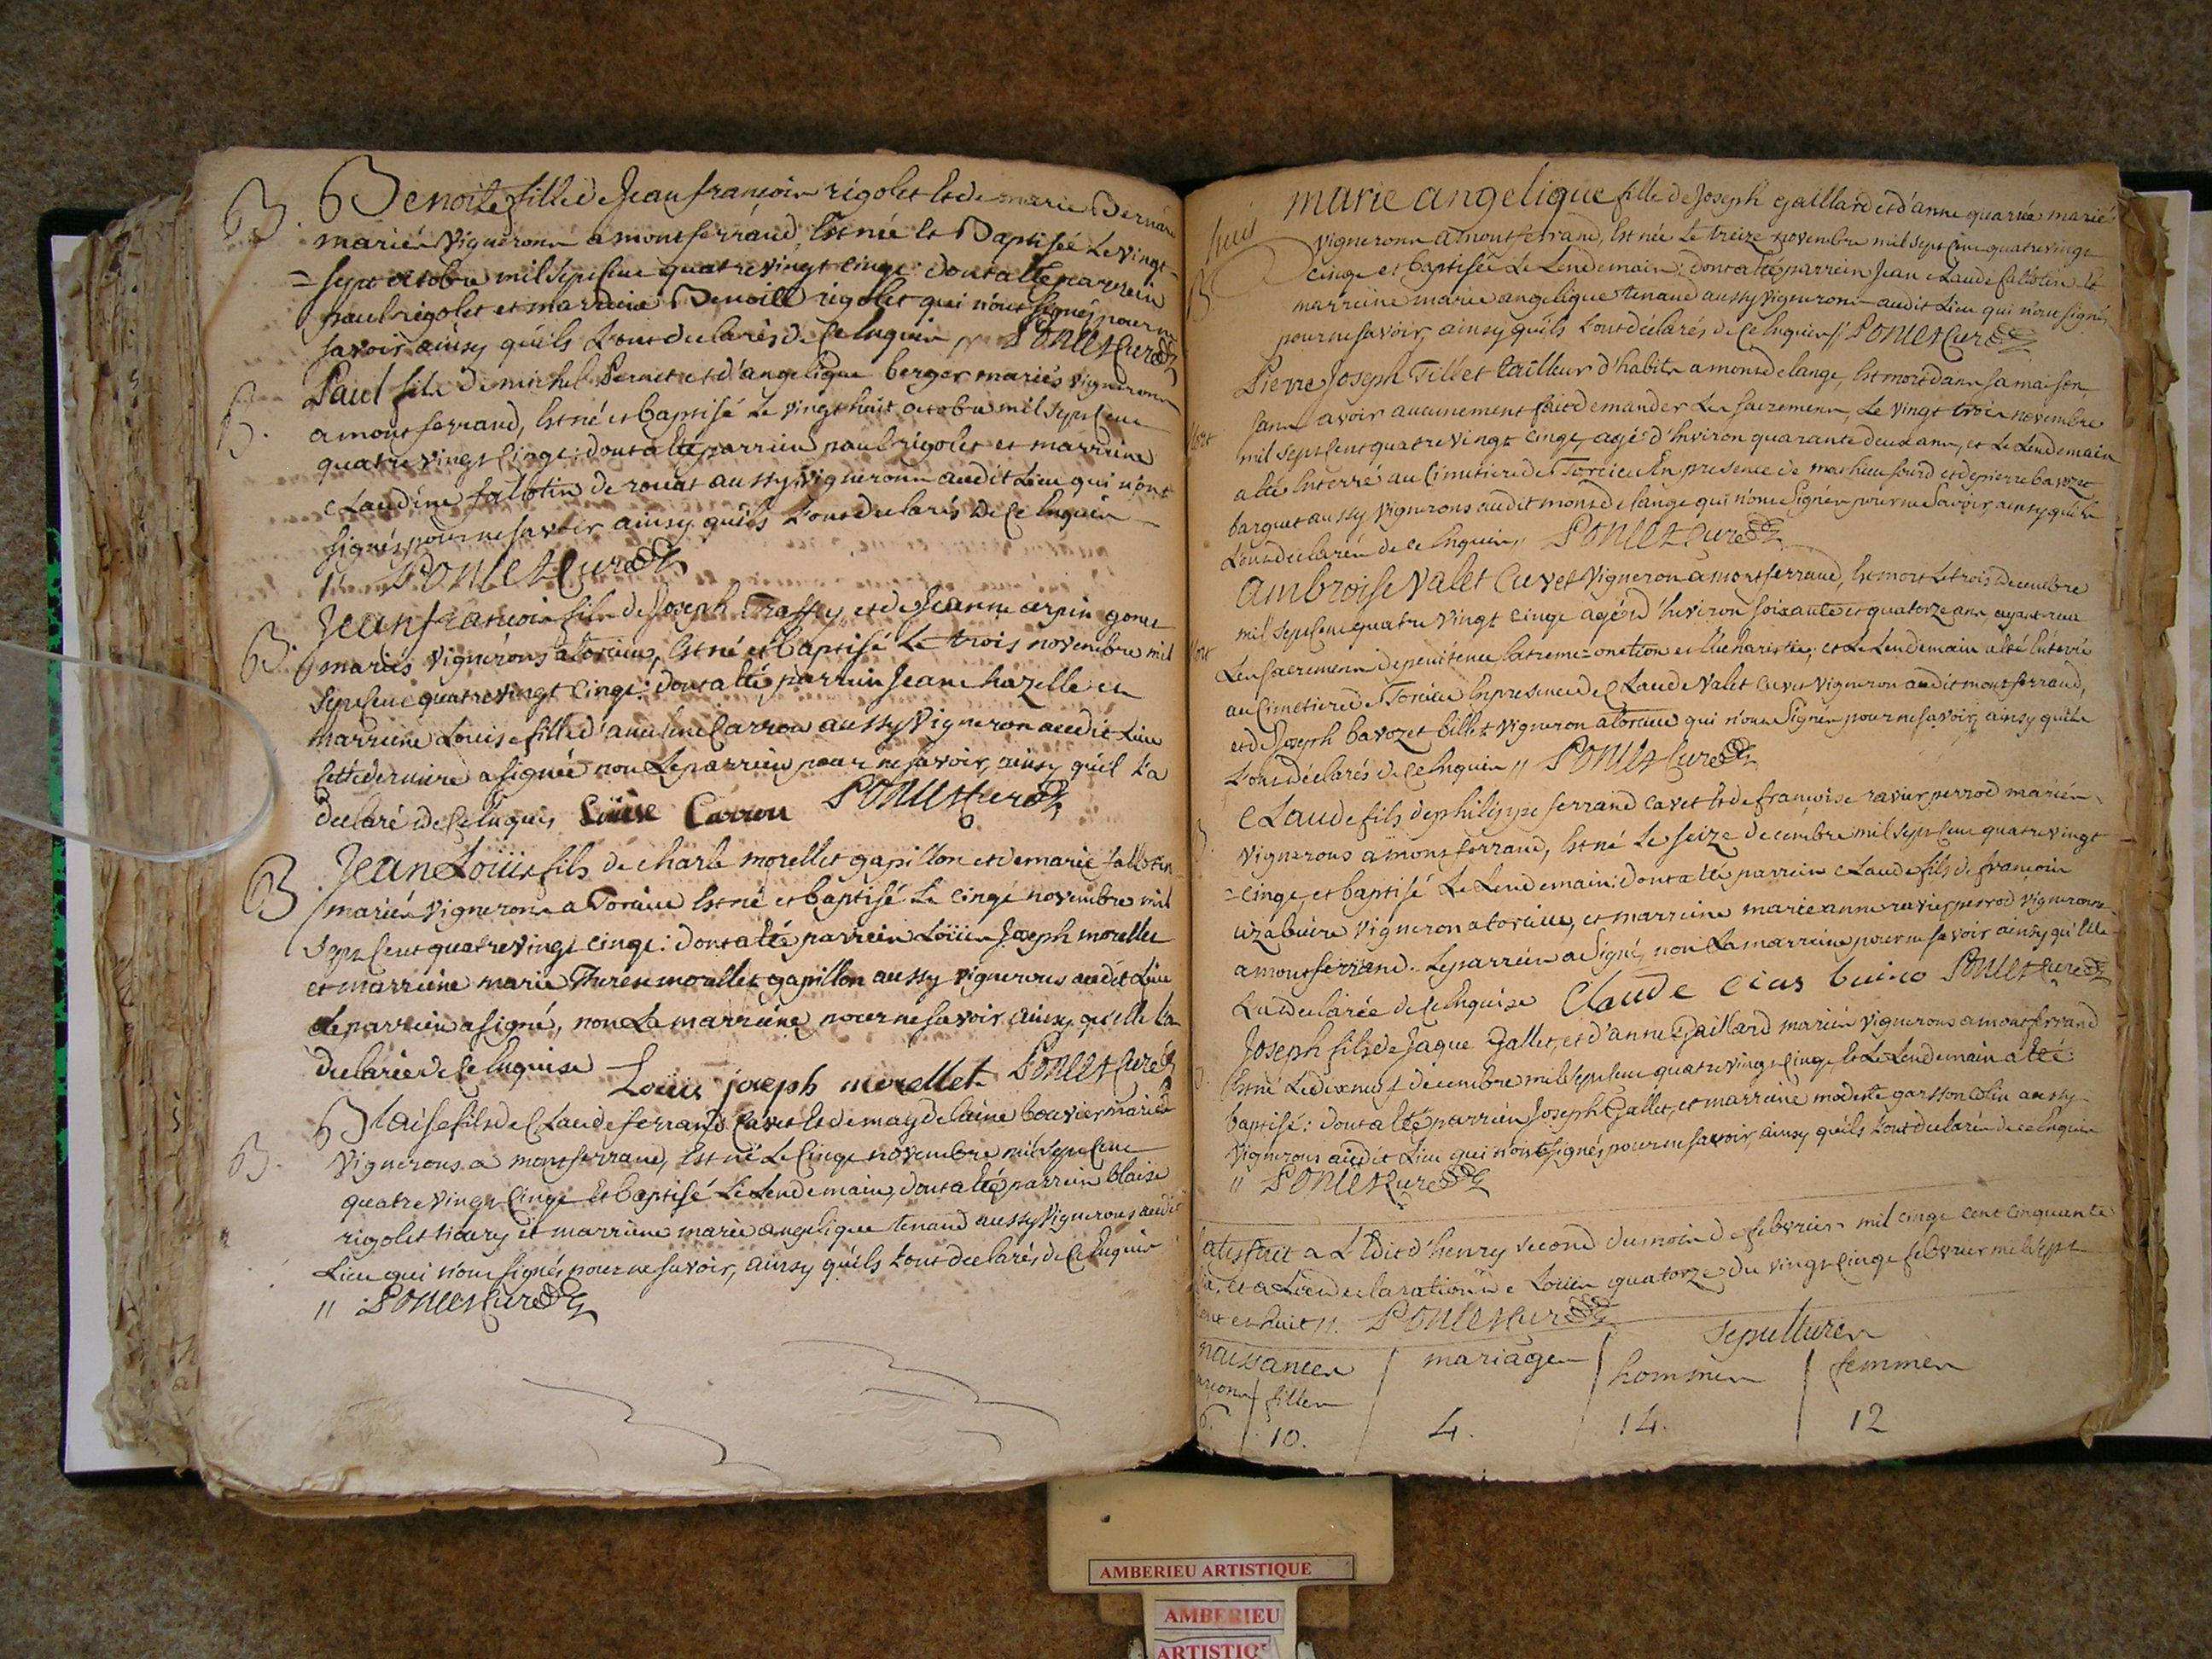 B. Benoite fille de Jean francois rigolet et de marie Bernard
mariés Vignerons a montferrand, Est née et Baptisée Le vingt-
= sept octobre mil sept Cent quatre vingt Cinq : dont a été parrein
paul rigolet et marreine Benoitte rigolet qui n'ont signés pour ne
savoir, ainsy qu'ils L'ont declarés de Ce Enquis // PONCET Curé
B. Paul fils de michel Pernet et d'angelique berger mariés vignerons
a mont ferrand, Est né et baptisé Le vingt huit octobre mil sept Cent
quatre vingt Cinq : dont a été parrein paul rigolet et marreine
Claudine fallotin de rouat aussy vignerons audit Lieu qui n'ont
signés pour ne savoir ainsy qu'ils L'ont declarés de Ce Enquis
// PONCET Curé
B. Jean francois fils de Joseph Traffay et de Jeanne arpin gonet
mariés vignerons a torcieu, Est né et baptisé Le trois novembre mil
sept Cent quatre vingt Cinq : dont a été parrein Jean chazelle et
marreine Louise fille d' Carron aussy vigneron audit Lieu
Cette derniere a signée non Le parrein pour ne savoir, ainsy qu'il L'a
declaré de Ce Enquis Loüise Carron PONCET Curé
B Jean Loüis fils de charle morellet gapillon et de marie fallotin
mariés vignerons a Torcieu Est né et baptisé Le Cinq novembre mil
sept Cent quatre vingt Cinq : dont a été parrein Loüis Joseph morellet
et marreine marie Therese morellet gapillon aussy vignerons audit Lieu
Le parrein a signé, non La marreine pour ne savoir, ainsy qu'elle L'a
declarée de Ce Enquise Loüis joseph morellet PONCET Curé
B. Blaise fils de Claude ferrand Cavet et de magdelaine bouvier mariés
Vignerons a montferrand, Est né Le Cinq novembre mil sept Cent
quatre vingt Cinq et baptisé Le Lendemain, dont a été parrein blaise
rigolet et marreine marie angelique tenand aussy vignerons audit
Lieu qui n'ont signés pour ne savoir, ainsy qu'ils L'ont declarés, de Ce Enquis
// PONCET Curé
marie angelique fille de Joseph gaillard et d'anne quarrée mariés
B vignerons a montferrand, Est née Le treize novembre mil sept Cent quatre vingt
Cinq et baptisée Le Lendemain : dont a été parrein Jean Claude fallotin et
marreine marie angelique tenand aussy vignerons audit Lieu qui n'ont signé,
pour ne savoir, ainsy qu'ils L'ont déclarés, de Ce Enquis // PONCET Curé
Pierre Joseph Tillet tailleur d'habits a mont de lange, Est mort dans sa maison,
sans avoir aucunement fait demander Les sacremens, Le vingt trois novembre
mort mil sept Cent quatre vingt Cinq, agé d'Environ quarante deux ans, et Le Lendemain
a été Enterré au Cimetiere de Torcieu En presence de mathieu sourd et de pierre bavozet
barquet aussy vignerons audit mont de lange qui n'ont signés pour ne savoir, ainsy qu'ils
L'ont declarés de Ce Enquis, // PONCET Curé
Ambroise Valet Cuvet Vigneron a montferrand, Est mort Le trois decembre
mort mil sept Cent quatre vingt Cinq agé d'Environ soixante et quatorze ans ayant reçu
Les sacremens de penitence Extreme-onction et Eucharistie, et Le Lendemain a été Enterré
au Cimetiere de Torcieu En presence de Claude Valet Cuvet vigneron audit montferrand,
et de Joseph bavozet billet vigneron a torcieu qui n'ont signés pour ne savoir, ainsy qu'ils
L'ont déclarés de Ce Enquis // PONCET Curé
Claude fils de philippe ferrand Cavet et de francoise ravier perrod mariés
vignerons a mont ferrand, Est né Le seize decembre mil sept Cent quatre vingt
= Cinq, et baptisé Le Lendemain : dont a été parrein Claude fils de francois
vigneron a torcieu, et marreine marie anne ravier perrod vigneronne
a montferrand. Le parrein a signé, non La marreine pour ne savoir ainsy qu'elle
L'a declarée de Ce Enquise Claude PONCET Curé
Joseph fils de Jaque Gallet, et d'anne Gaillard mariés vignerons a montferrand
Est né Le dix neuf décembre mil sept Cent quatre vingt Cinq, et Le Lendemain a été
baptisé : dont a été parrein Joseph Gallet, et marreine modeste garsson Colin aussy
vignerons audit Lieu qui n'ont signés pour ne savoir, ainsy qu'ils L'ont declarés de ce Enquis
// PONCET Curé
satisfait a L'Edit d'henry second du mois de febvrier mil cinq cent cinquante
et a La declaration de Loüis quatorze du vingt Cinq febvrier mil sept
cent et huit //. PONCET Curé
naissances | mariages | sepultures
garçons | filles | hommes | femmes
10. 4. 14. 12
AMBERIEU ARTISTIQUE
AMBERIEU
ARTISTIQ